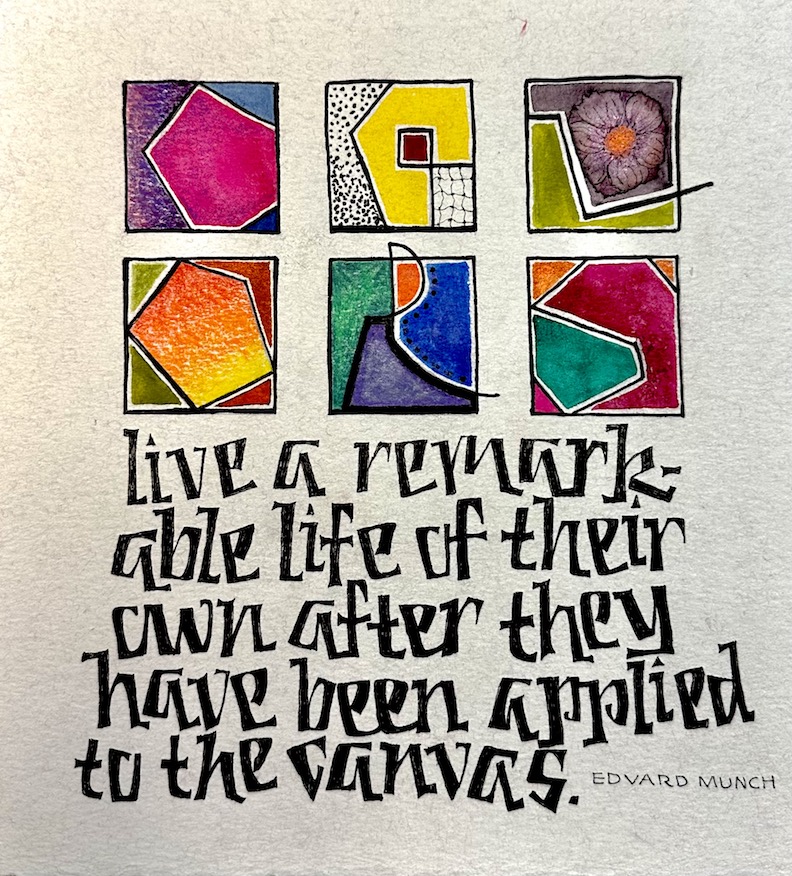 COL
ORS
live a remark-
able life of their
own after they
have been applied
to the canvas.
EDVARD MUNCH